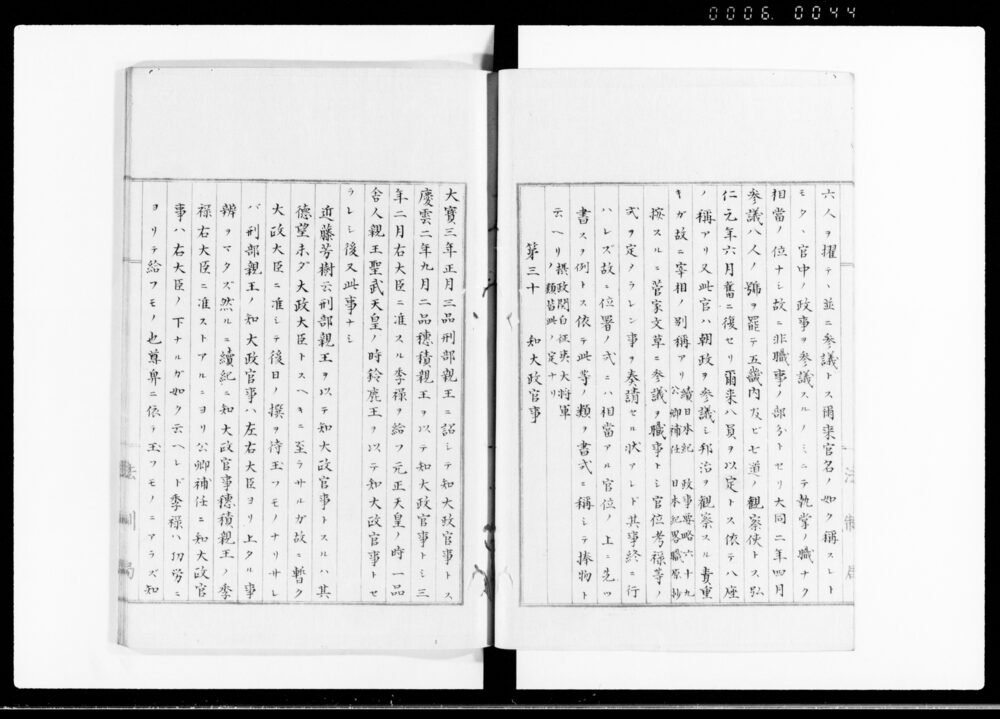 0006. 0044
六人ヲ擢テヽ並ニ参議トス爾来官名ノ如ク稱スレト
モタヽ官中ノ政事ヲ参議スルノミニテ執掌ノ職ナク
相當ノ位ナシ故ニ非職事ノ部分トセリ大同二年四月
参議八人ノ號ヲ罷テ五畿内及ビ七道ノ觀察使トス弘
仁元年六月舊ニ復セリ爾来八員ヲ以定トス依テ八座
ノ稱アリ又此官ハ朝政ヲ参議シ邦治ヲ觀察スル責重
キガ故ニ宰相ノ別稱アリ
續日本紀 政事要略六十九
公卿補任 日本紀畧職原抄
按スルニ菅家文草ニ参議ヲ職事トシ官位考禄等ノ
式ヲ定ノラレン事ヲ奏請セル状アレド其事終ニ行
ハレズ故ニ位署ノ式ニハ相當アル官位ノ上ニ先ツ
書スヲ例トス依テ此等ノ類ヲ書式ニ稱シテ捧物ト
云ヘリ
摂政関白征夷大将軍
ノ類皆此ノ定ナリ
第三十 知大政官事
大寶三年正月三品刑部親王ニ詔シテ知大政官事トス
慶雲二年九月二品穂積親王ヲ以テ知大政官事トシ三
年二月右大臣ニ准スル季禄ヲ給フ元正天皇ノ時一品
舍人親王聖武天皇ノ時鈴鹿王ヲ以テ知大政官事トセ
ラレシ後又此事ナシ
近藤芳樹云刑部親王ヲ以テ知大政官事トスルハ其
德望未ダ大政大臣トスヘキニ至ラサルガ故ニ暫ク
大政大臣ニ准シテ後日ノ撰ヲ待玉フモノナリサレ
バ刑部親王ノ知大政官事ハ左右大臣ヨリ上タル事
辨ヲマタズ然ルニ續紀ニ知大政官事穂積親王ノ季
禄右大臣ニ准ストアルニヨリ公卿補任ニ知大政官
事ハ右大臣ノ下ナルガ如ク云ヘレド季禄ハ功労ニ
ヨリテ給フモノ也尊卑ニ依テ玉フモノニアラズ知
法制局